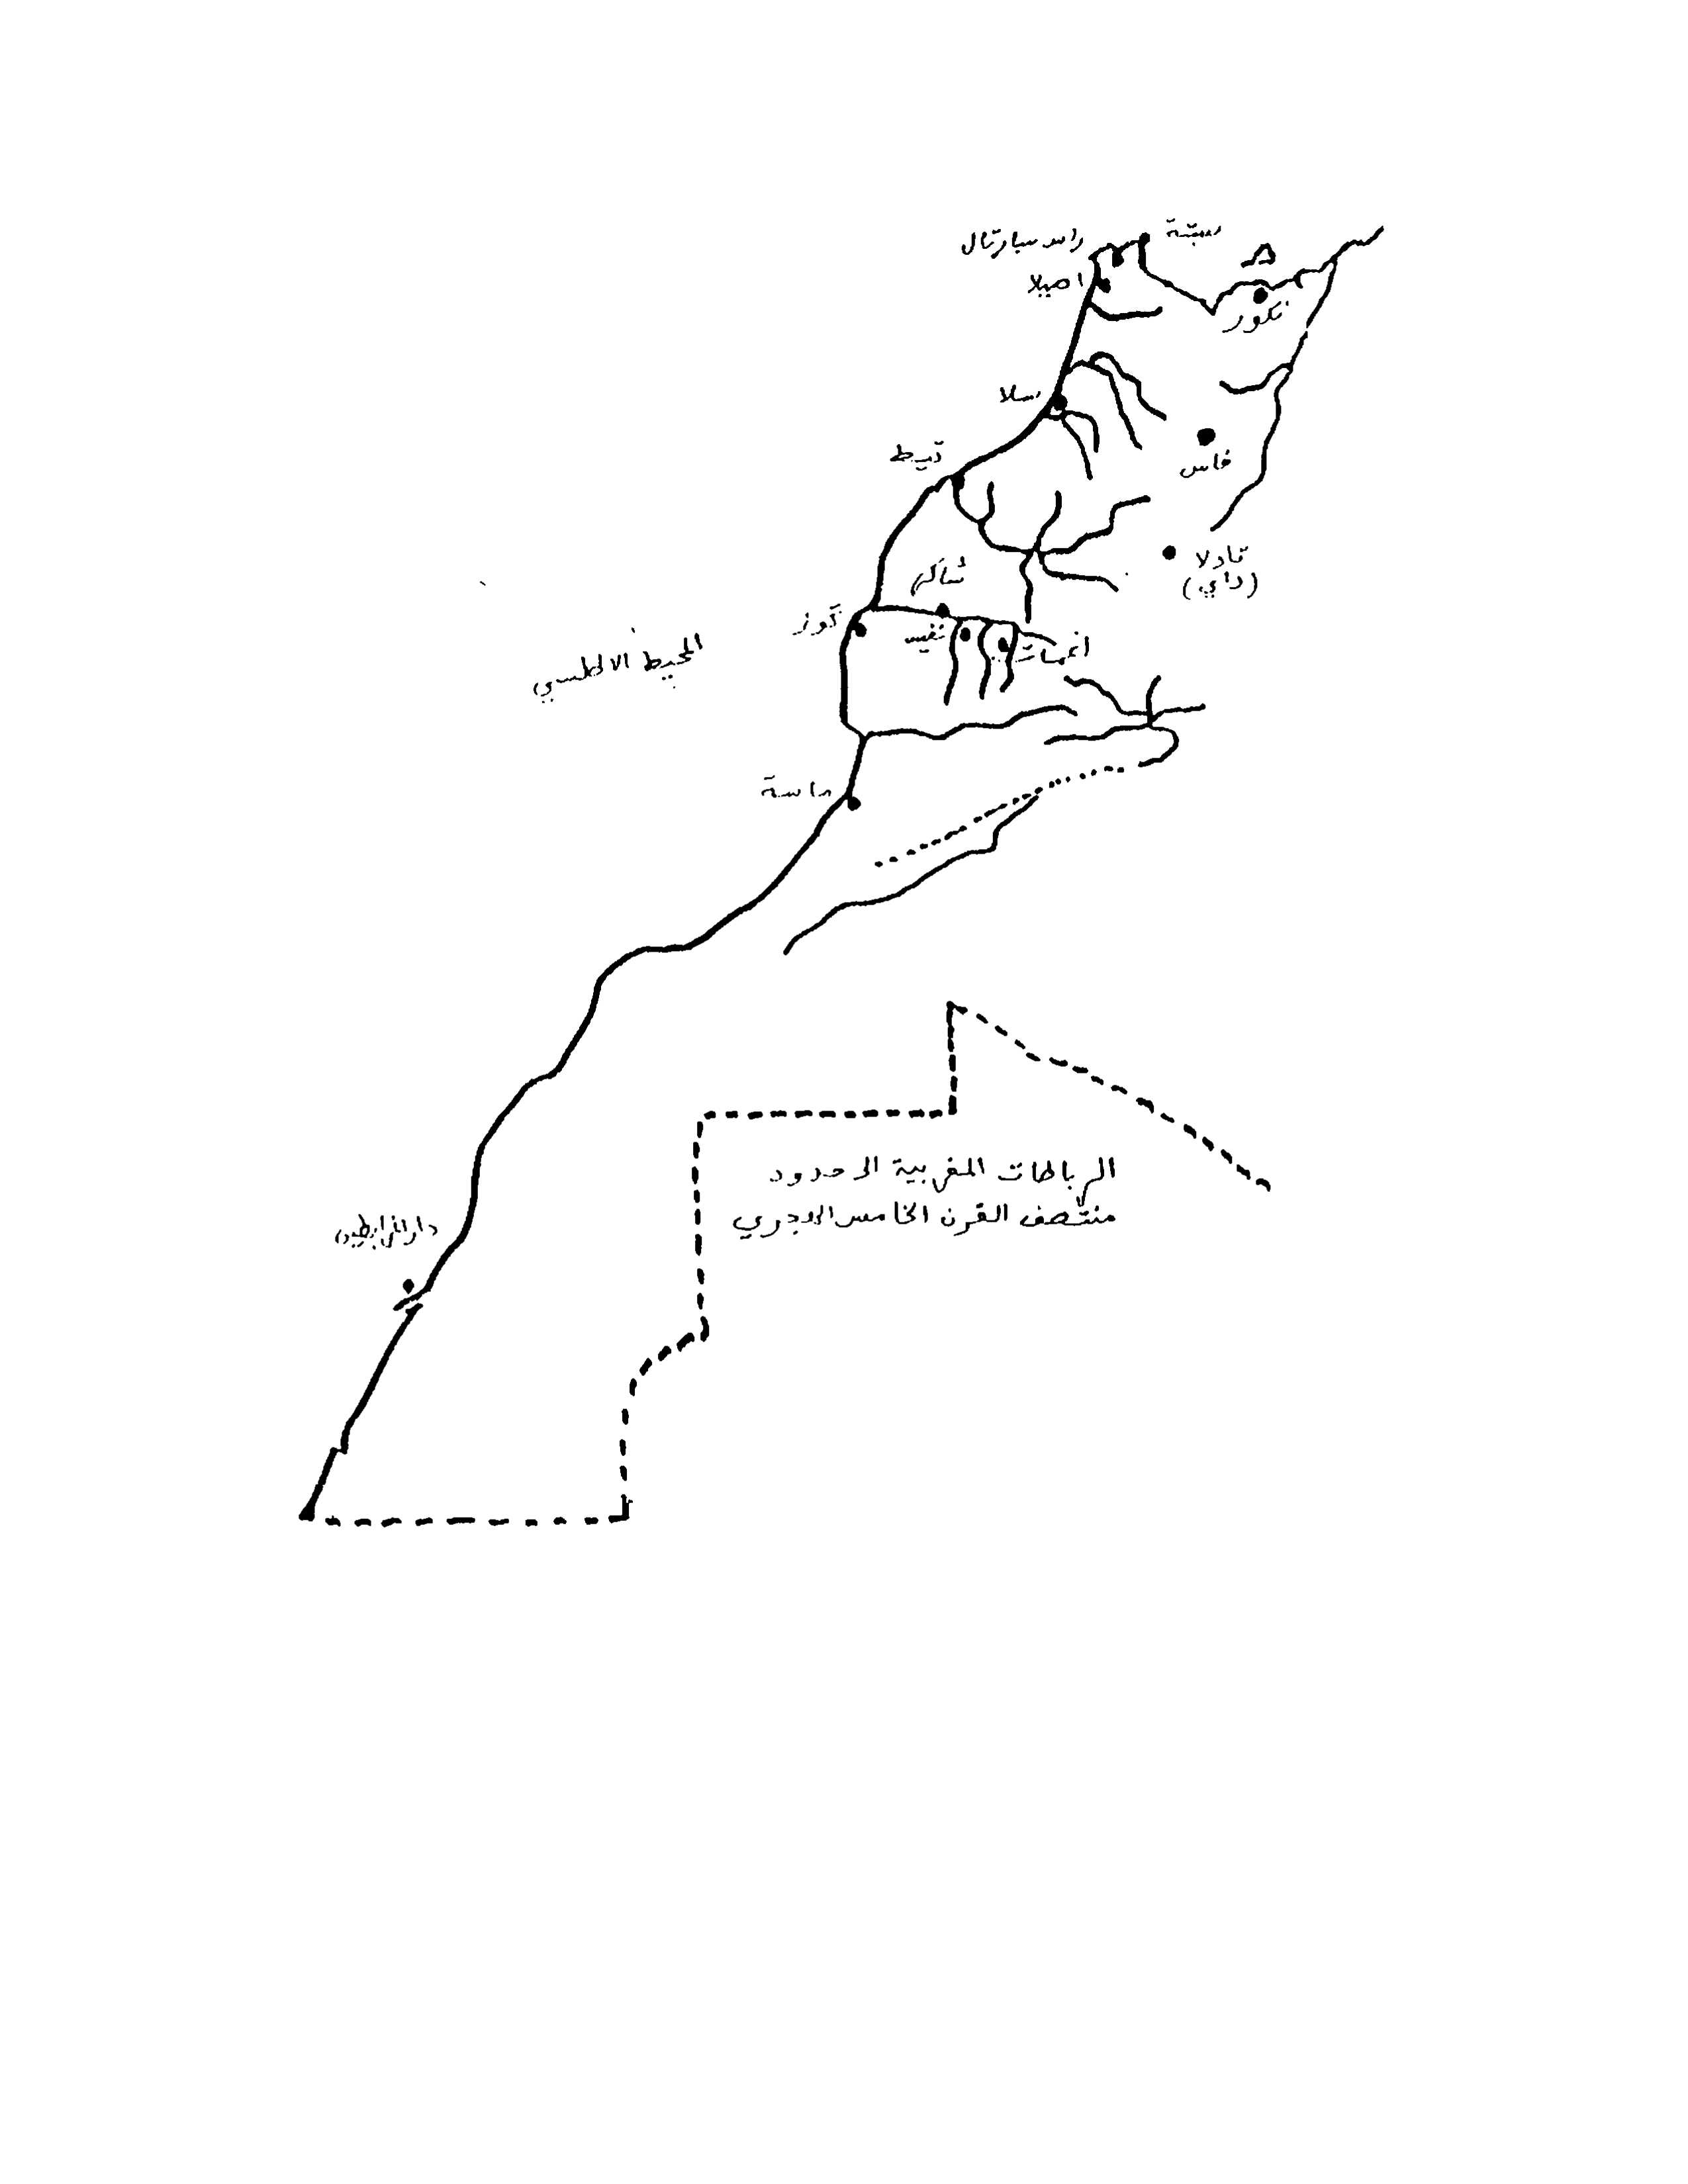 سبتة
راس سبارتال
اصيلا
نكور
سلا
فاس
تيط
تادلا
(داي)
شاكر
كوز
نفيس
اغمات
المحيط الاطلسي
ماسة
الرباطات المغربية الى حدود
منتصف القرن الخامس الهجري
دار المرابطين